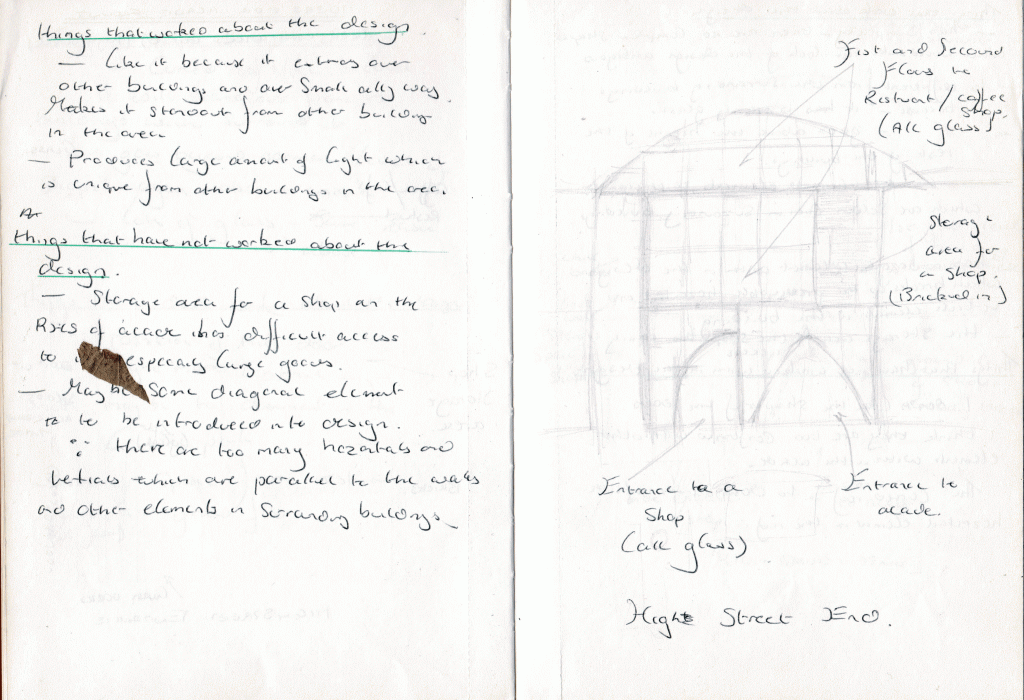 things that worked about the design.
— Like it because it extends over
other buildings and over small alley way.
Makes it standout from other building
in the area.
— Produces large amount of light which
is unique from other buildings in the area.
things that have not worked about the
design.
— Storage area for a shop on the
of difficult access
to especially large goods.
— May be some diagonal element
to be introduced into design.
∵ there are too many hozontals and
verticals which are parallel to the walls
and other elements in surrounding buildings
Fist and Second
Floors to
Resturant / coffee
shop.
(All glass)
Storage
area for
a shop.
(Bricked in)
Entrance to a
Shop
(all glass)
Entrance to
acade.
Hight Street End.